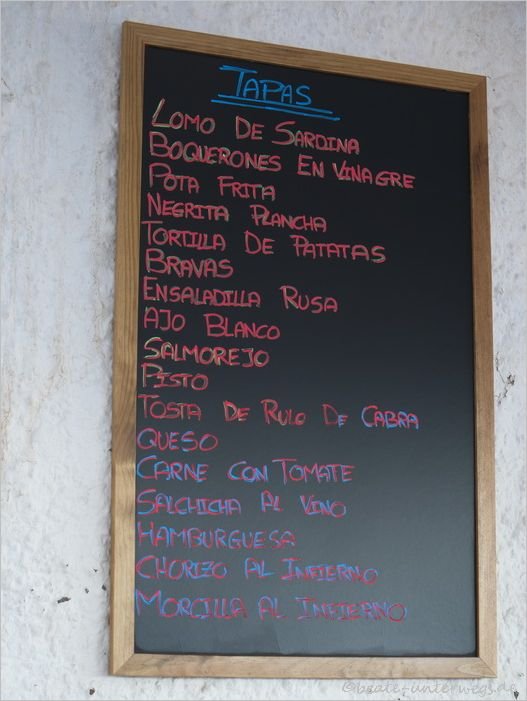 TAPAS
LOMO DE SARDINA
BOQUERONES EN VINAGRE
POTA FRITA
NEGRITA PLANCHA
TORTILLA DE PATATAS
BRAVAS
ENSALADILLA RUSA
AJO BLANCO
SALMOREJO
PISTO
TOSTA DE RULO DE CABRA
QUESO
CARNE CON TOMATE
SALCHICHA AL VINO
HAMBURGUESA
CHORIZO AL INFIERNO
MORCILLA AL INFIERNO
©beate-unterwegs.de